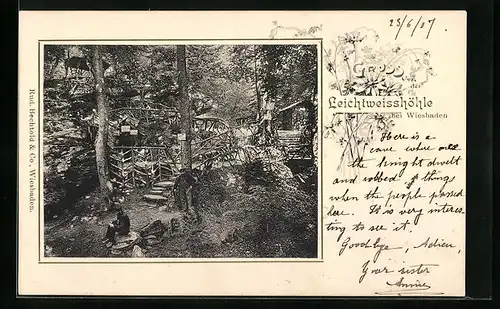 23/6/07
Gruss
von der
Leichtweisshöhle
bei Wiesbaden
Rud. Bechtold & Co., Wiesbaden.
Here is a
cave where
the Knight dwelt
and robbed things
when the people passed
here. It is very interes-
ting to see it.
Goodbye, Adieu,
Your sister
Annie